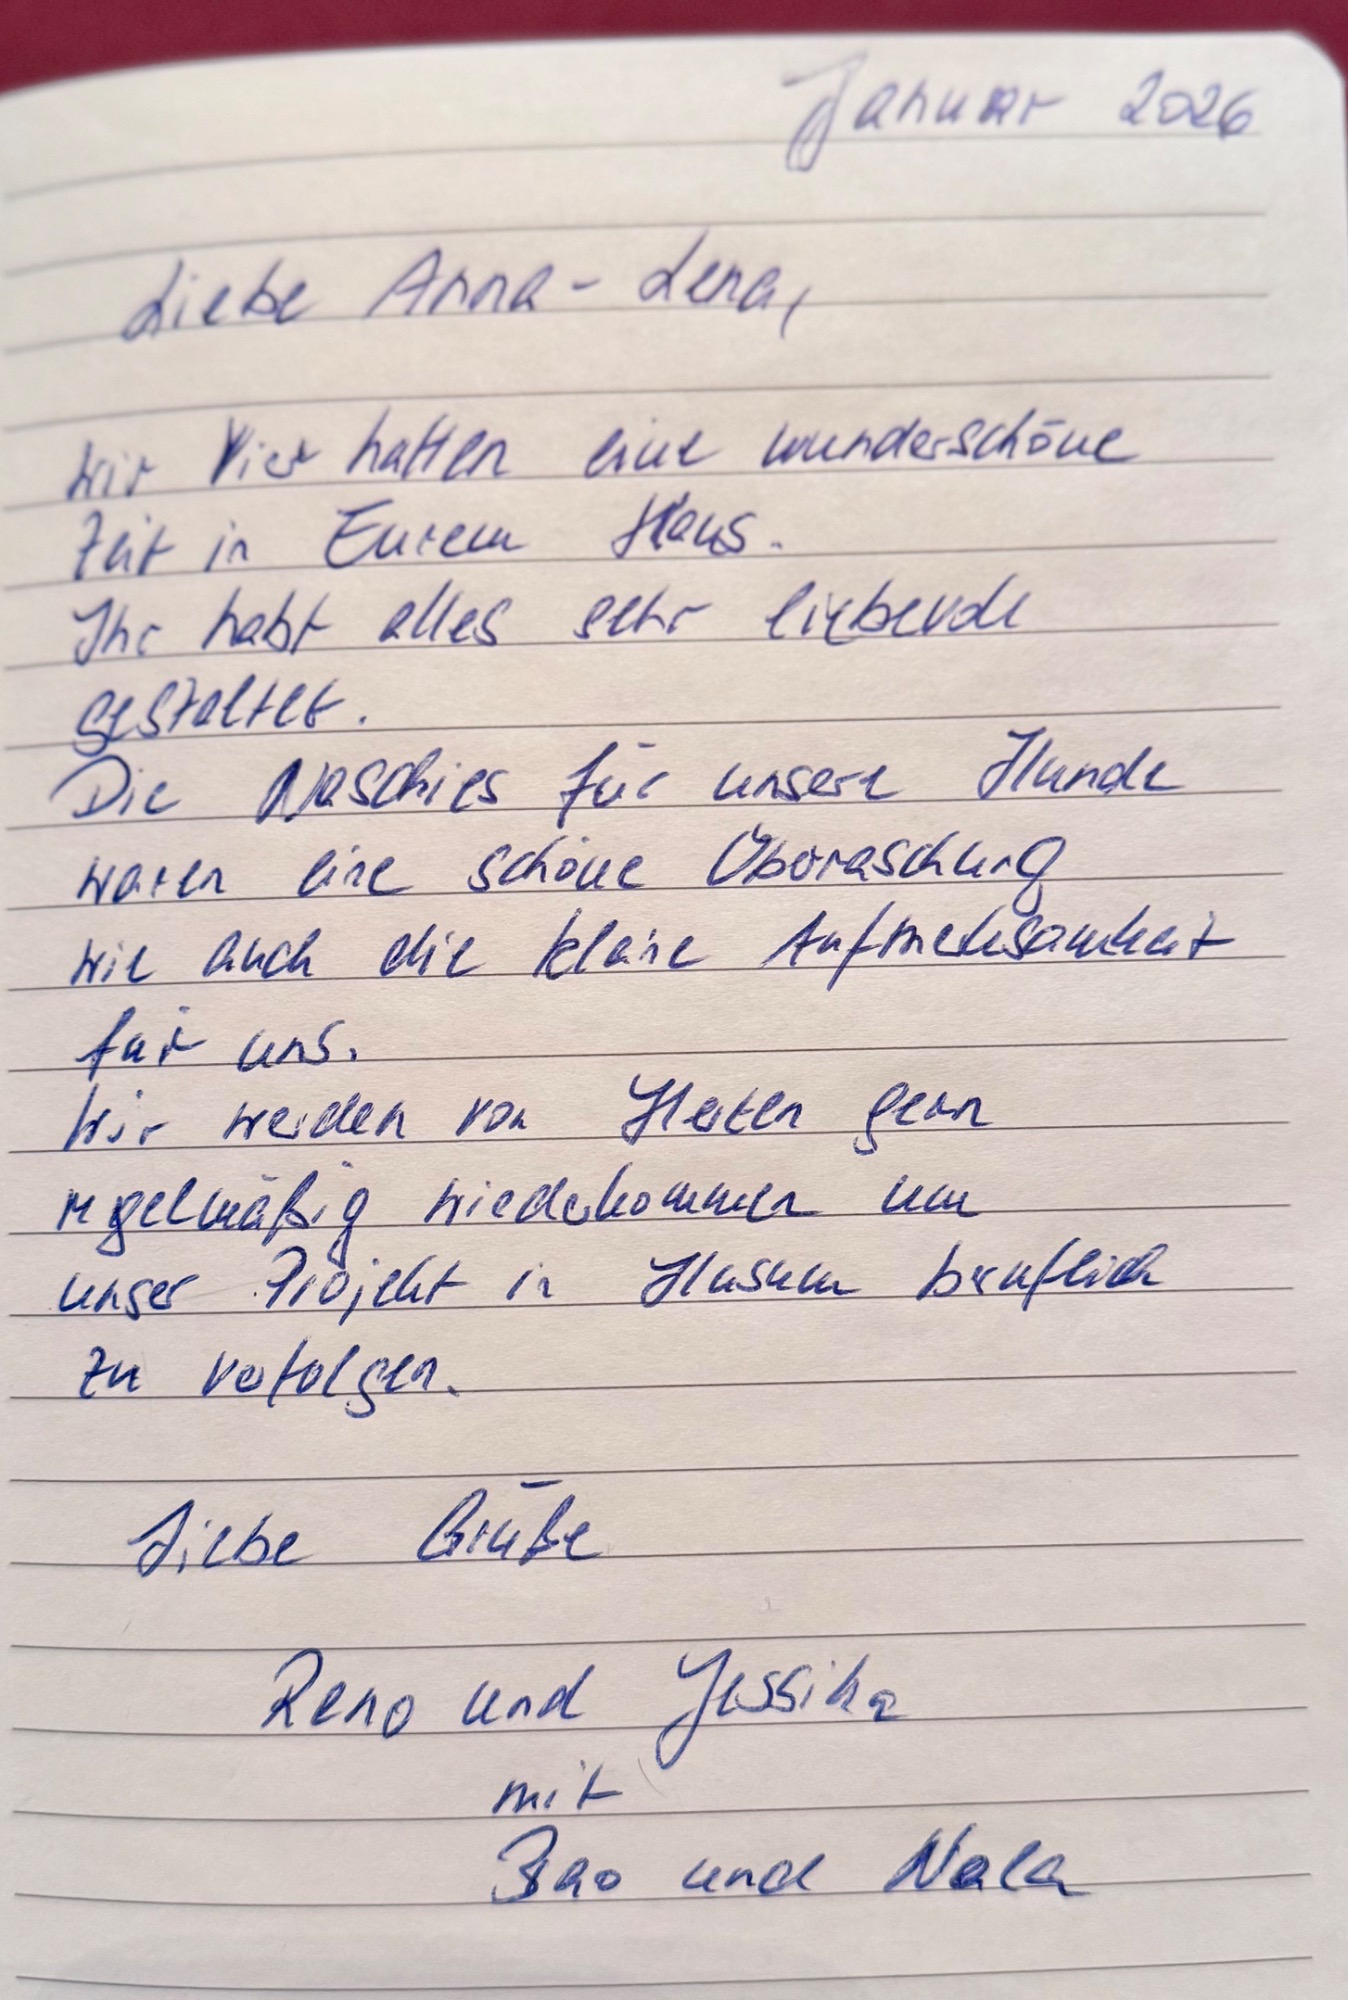 Januar 2026
Liebe Anna-Lena,
wir Vier hatten eine wunderschöne
Zeit in Eurem Haus.
Ihr habt alles sehr liebevoll
gestaltet.
Die Naschies für unsere Hunde
waren eine schöne Überraschung
wie auch die kleine Aufmerksamkeit
für uns.
Wir werden von Herzen gern
regelmäßig wiederkommen um
unser Projekt in Husum beruflich
zu verfolgen.
Liebe Grüße
Reno und Jessika
mit
Bao und Nala